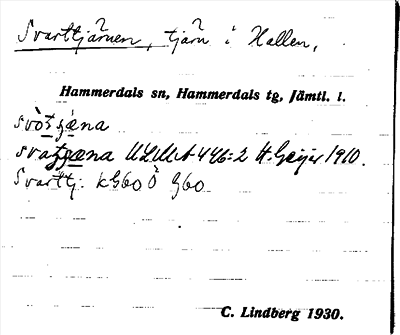 Svarttjärnen, tjärn i Hallen,
Hammerdals sn, Hammerdals tg, Jämtl. l.
svòtʒǽna
svatʒæna ULMA 446:2 H. Geijer 1910.
Svarttj: kG60 Ö g60
C. Lindberg 1930.